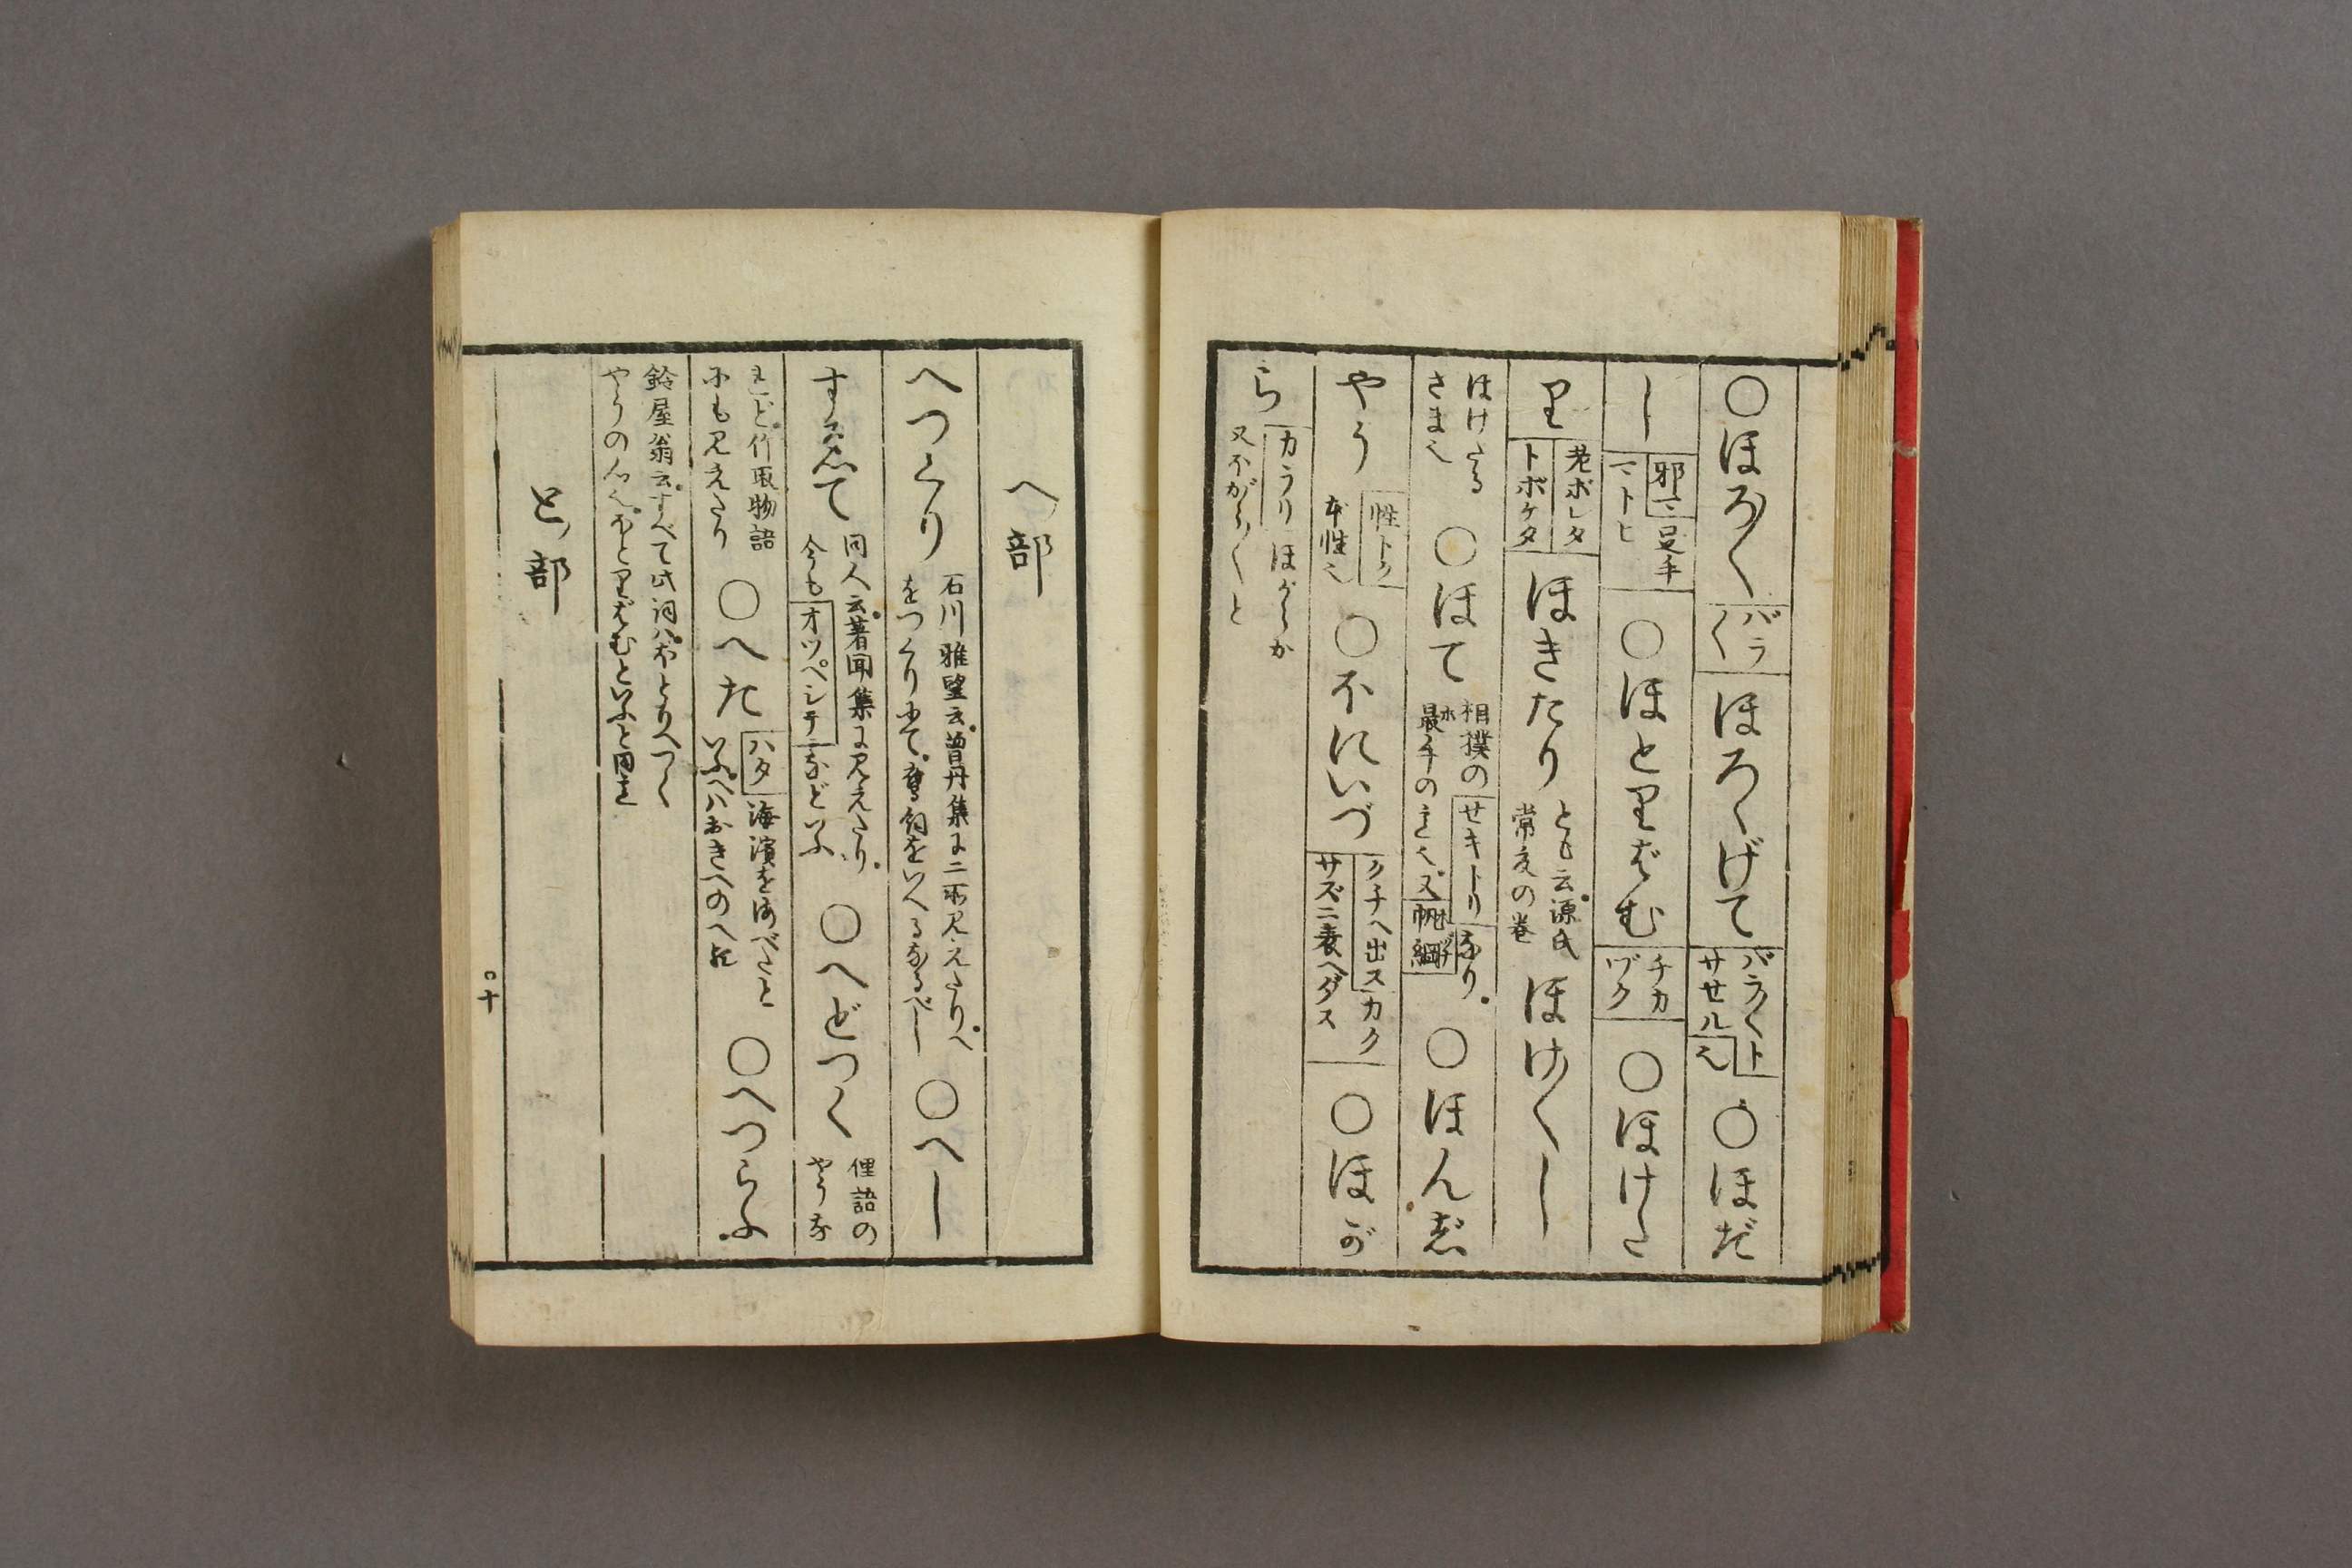 ○ほろ〳〵 バラ〳〵 ほろゝげて バラ〳〵ト サセル也 ○ほだ
し 邪マ 足手マトヒ ○ほとりばむ チカヅク ○ほけた
り 老ボレタ トボケタ ほきたり とも云源氏 常夏の巻 ほけ〳〵し
ほけたる さま也 ○ほて 相撲の セキトリ なり 最手の 又 帆綱 ○ほんじ
やう 性トク 本性也 ○ほにいづ クチヘ出ス カクサズニ表ヘダス ○ほが
ら カラリ ほがらか 又ほがら〳〵と
へ部
へつくり 石川雅望云曽丹集に二所見えたりへ をつくりにて 飼をいへるなるべし ○へし
すゑて 同人云著聞集に見えたり 今も オツペシテ などいふ ○へどつく 俚語の やうな
れど竹取物語 にも見えたり ○へた ハタ 海濱をうみべたと いふへはおきへのへた ○へつらふ
鈴屋翁云すべて此詞はほとりへつく やうの心也ほとりばむといふと同き
と部
十